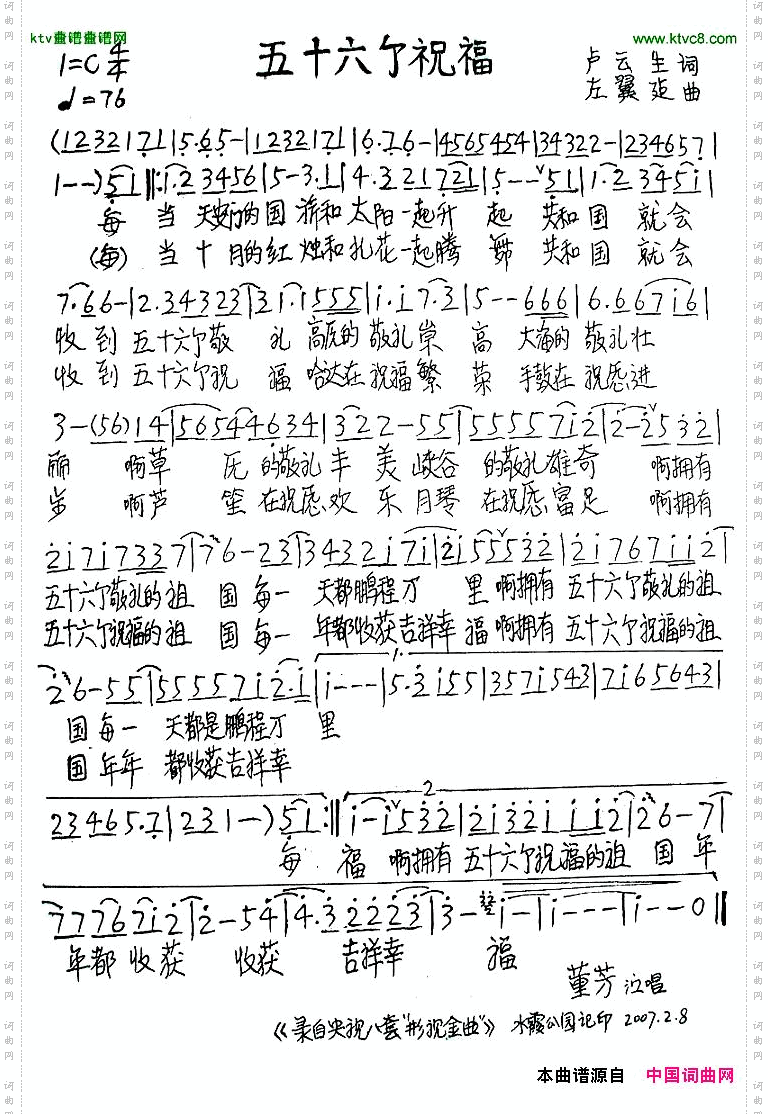 ktv曲谱曲谱网
www.ktvc8.com
1=C 4/4
五十六个祝福
卢云生词
♩=76
左翼延曲
(1 2 3 2 1 7 1 | 5· 6 5 - | 1 2 3 2 1 7 1 | 6· 7 6 - | 4 5 6 5 4 5 4 | 3 4 3 2 2 - | 2 3 4 6 5 7 |
1 - - ) 5 1 ‖: 1· 2 3 4 5 6 | 5 - 3· 1 | 4· 3 2 1 7 2 1 | 5 - - 5 1 | 1· 2 3 4 5 1 |
每 当 天安门的国 旗和太阳一起升 起 共和国 就会
(每) 当 十 月的红 烛和礼花一起腾 舞 共和国 就会
7· 6 6 - | 2· 3 4 3 2 3 | 3 1· 1 5 5 5 | 1· 1 7· 3 | 5 - - 6 6 6 | 6· 6 6 7 1 6 |
收到 五十六个敬 礼 高原的敬礼崇 高 大海的 敬礼壮
收到 五十六个祝 福 哈达在祝福繁 荣 手鼓在 祝愿进
3 - (5 6) 1 4 | 5 6 5 4 4 6 3 4 | 3 2 2 - 5 5 | 5 5 5 5 7 1 2 | 2 - 2 5 3 2 |
丽 啊草 原 的敬礼丰 美 峡谷 的敬礼雄奇 啊拥有
步 啊芦 笙 在祝愿欢 乐 月琴 在祝愿富足 啊拥有
2 1 7 1 7 3 3 7 | 7 6 - 2 3 | 3 4 3 2 1 7 1 | 2 1 5 5 5 3 2 | 2 1 7 6 7 1 1 2 |
五十六个敬礼的祖 国 每一 天都鹏程万 里 啊拥有 五十六个敬礼的祖
五十六个祝福的祖 国 每一 年都收获吉祥幸 福 啊拥有 五十六个祝福的祖
1.
2 6 - 5 5 | 5 5 5 5 7 1 2· 1 | 1 - - - | 5· 3 1 5 5 | 3 5 7 1 5 4 3 | 7 1 6 5 6 4 3 |
国 每一 天都是鹏程万 里
国 年年 都收获吉祥幸
2
2 3 4 6 5· 7 | 2 3 1 - ) 5 1 :‖ 1 - 1 5 3 2 | 2 1 3 2 1 1 1 2 | 2 6 - 7 |
每 福 啊拥有 五十六个祝福的祖 国 年
7 7 7 6 7 1 2 | 2 - 5 4 | 4· 3 2 2 2 3 | 3 - 1 - | 1 - - - | 1 - - 0 ‖
年都 收获 收获 吉祥幸 福
董芳 演唱
《录自央视八套“影视金曲”》 水霞公园记印 2007.2.8
本曲谱源自 中国词曲网